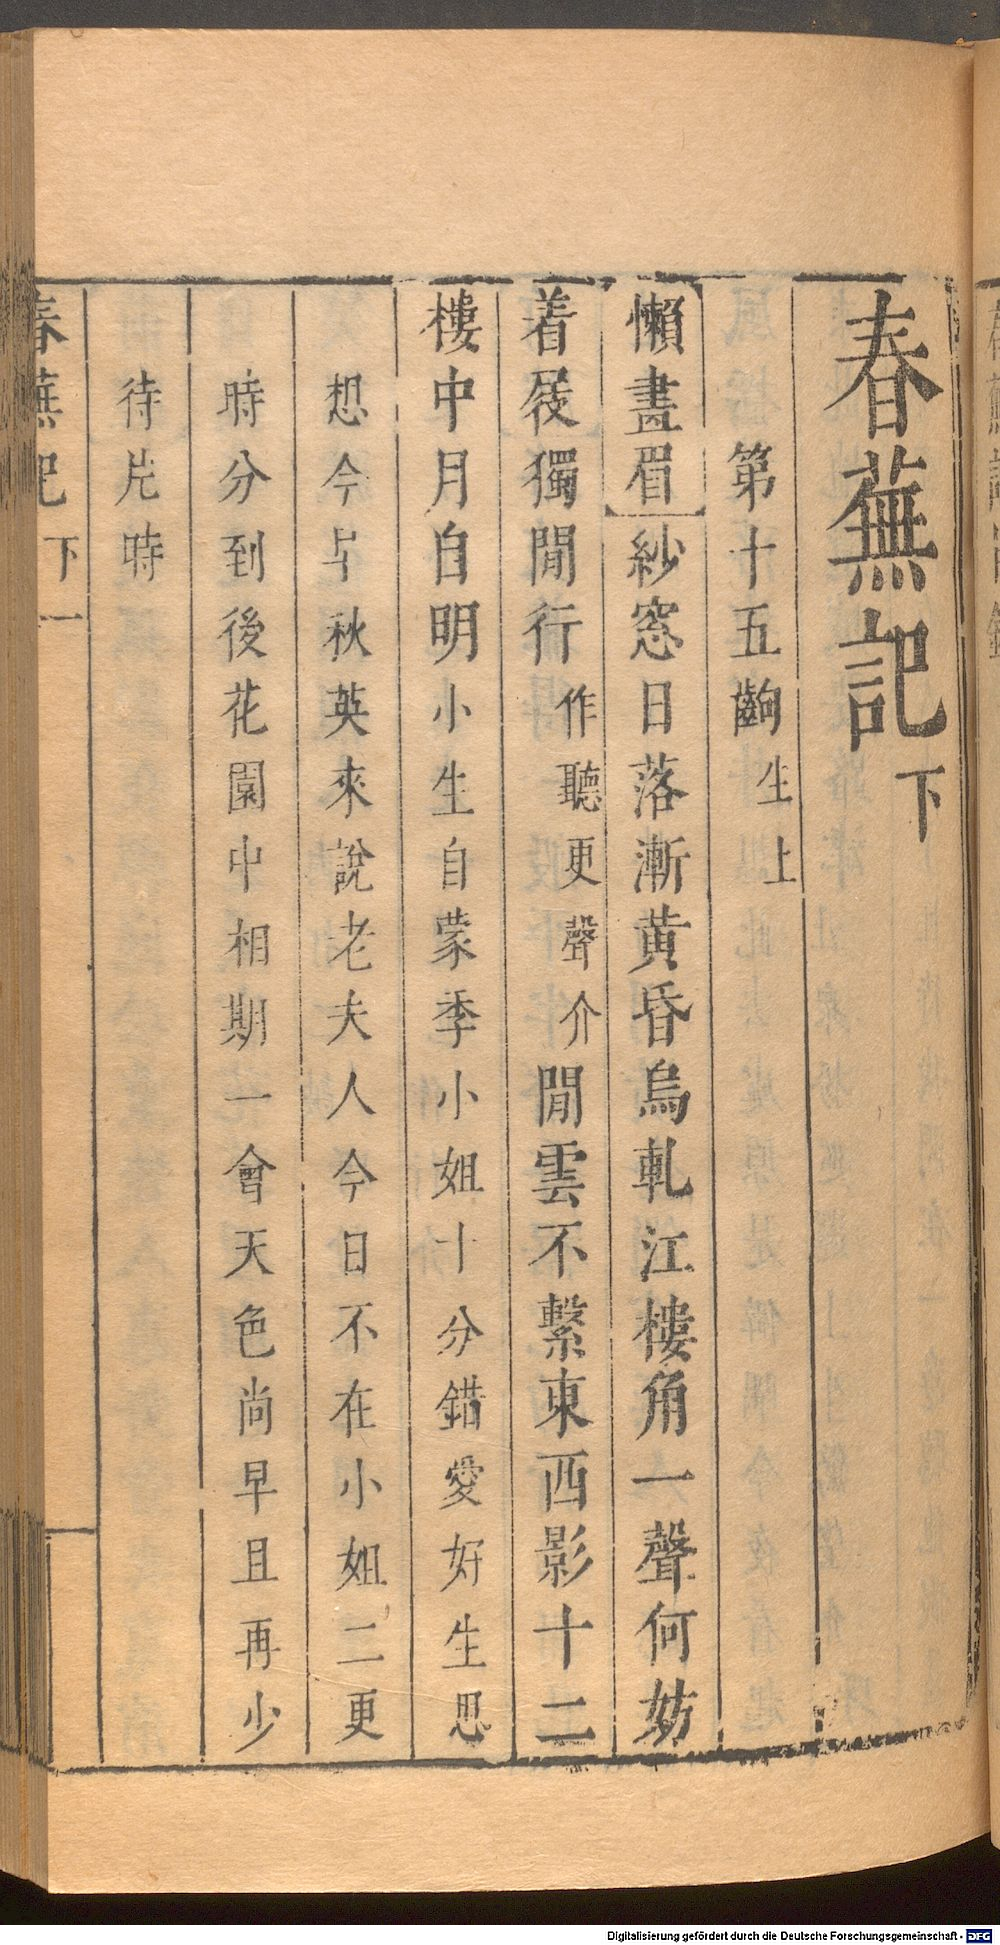 春蕪記下
第十五齣 生上
懶畫眉 紗窓日落漸黄昏烏軋江樓角一聲何妨
着屐獨閒行 作聽更聲介 閒雲不繫東西影十二
樓中月自明 小生自蒙季小姐十分錯愛好生思
想今早秋英來說老夫人今日不在小姐二更
時分到後花園中相期一會天色尚早且再少
待片時
春蕪記 下 一
Digitalisierung gefördert durch die Deutsche Forschungsgemeinschaft - DFG